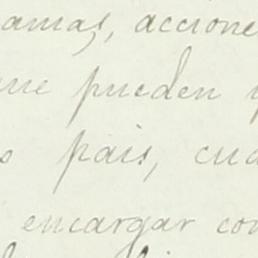 amas, accione
ue pueden
s pais, cua
encargar con